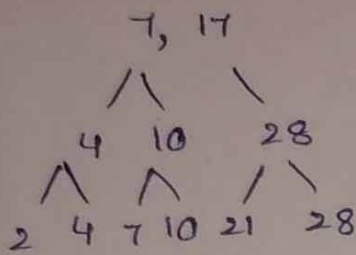 7, 17
4 10 28
2 4 7 10 21 28